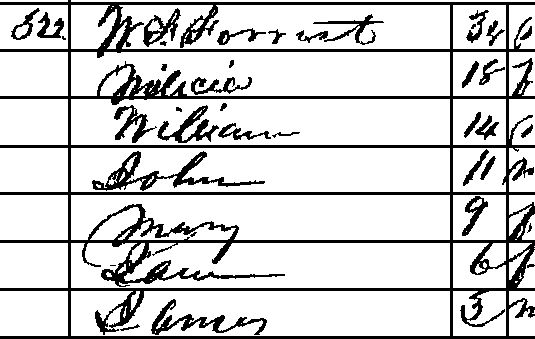 522 W. F. Forrest 34
18 f
William 14
John 11 m
Mary 9 f
6 f
James 5 m